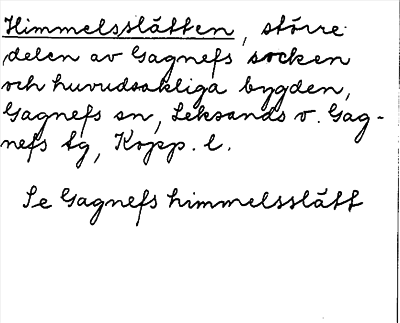 Himmelsslätten, större
delen av Gagnefs socken
och huvudsakliga bygden,
Gagnefs sn, Leksands o. Gag-
nefs tg, Kopp. l.
Se Gagnefs himmelsslätt